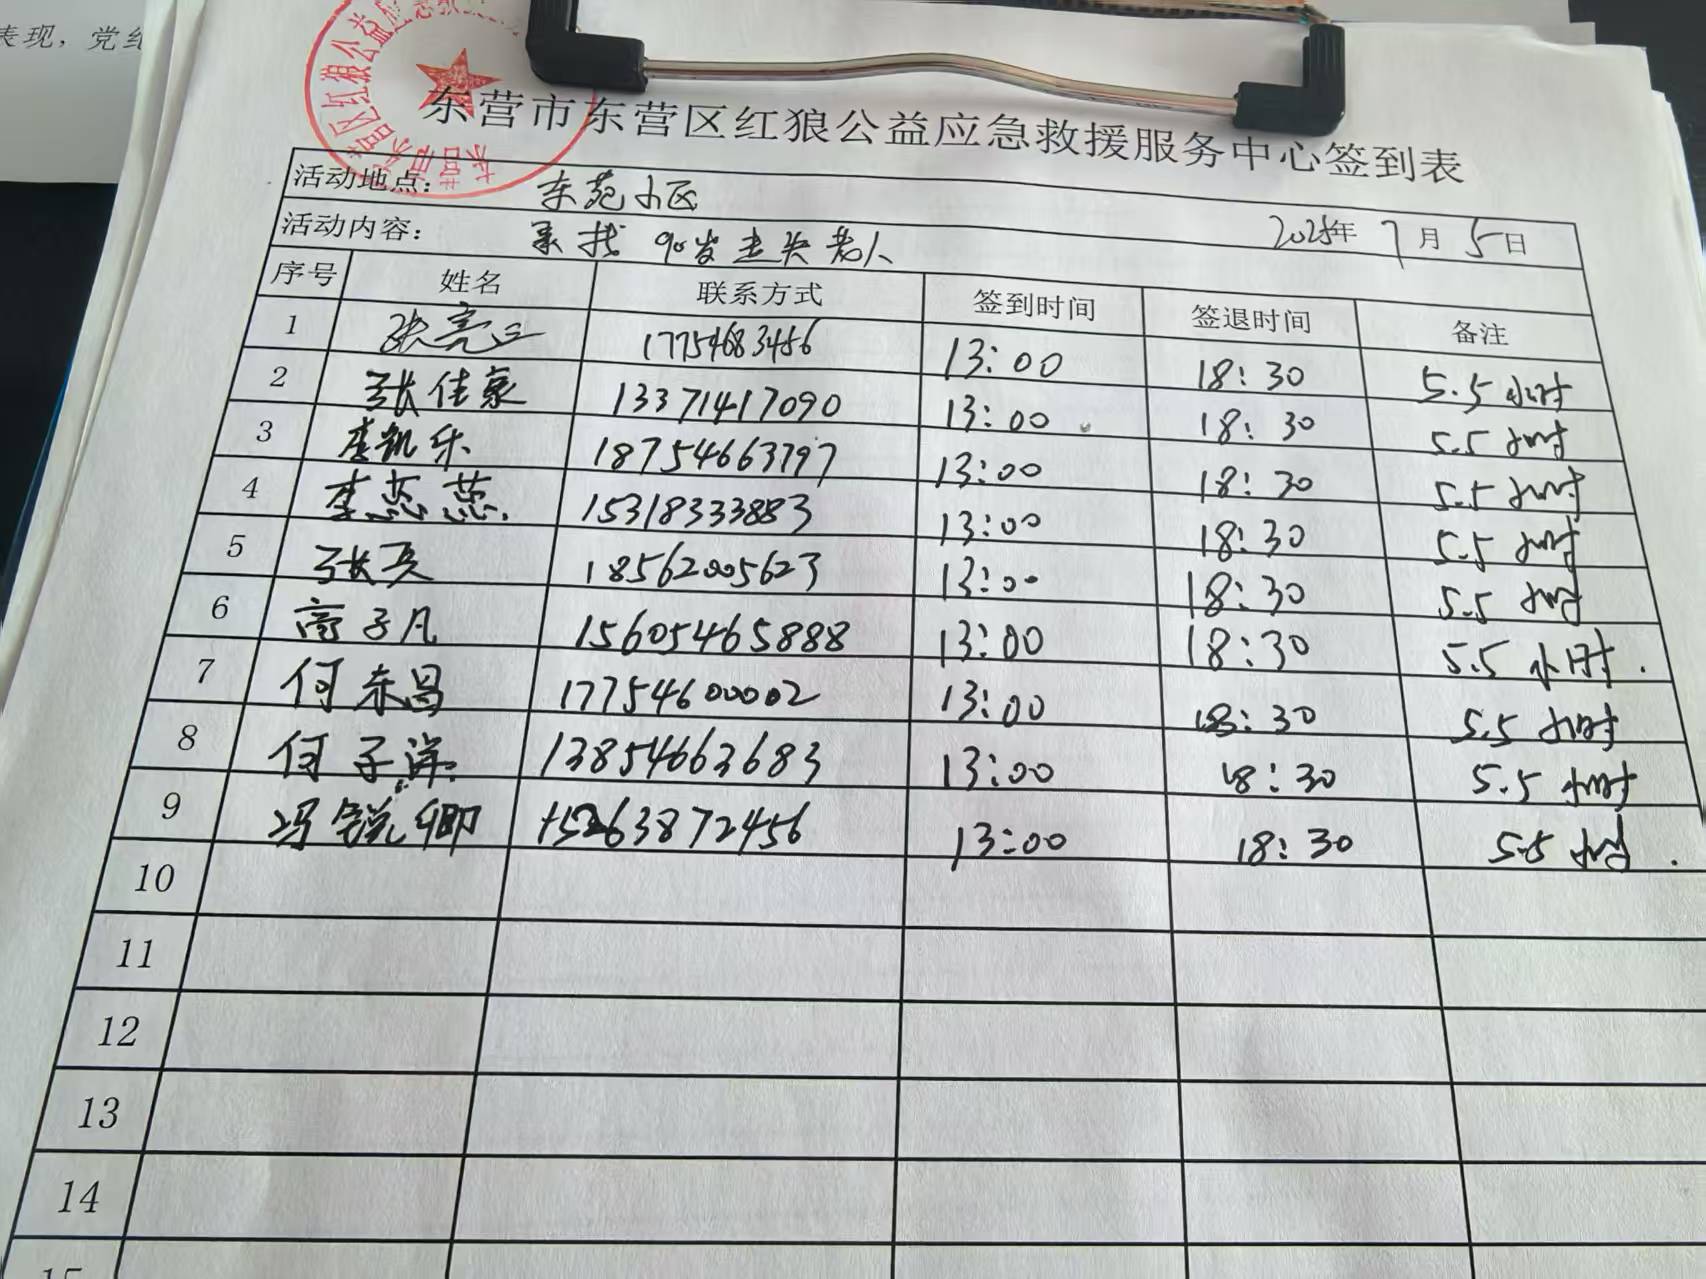 表现，党组
东营市东营区红狼公益应急救援服务中心签到表
活动地点： 东苑小区 2025年 7月 5日
活动内容： 寻找 90岁走失老人
序号 姓名 联系方式 签到时间 签退时间 备注
1 张亮 17754683456 13:00 18:30 5.5小时
2 张佳豪 13371417090 13:00 18:30 5.5小时
3 李凯乐 18754663797 13:00 18:30 5.5小时
4 李蕊蕊 15318333883 13:00 18:30 5.5小时
5 张 18562005623 13:00 18:30 5.5小时
6 高子凡 15605465888 13:00 18:30 5.5小时.
7 何昌 17754600002 13:00 18:30 5.5小时
8 何子洋 13854663683 13:00 18:30 5.5小时
9 冯锐卿 15263872456 13:00 18:30 5.5小时.
10
11
12
13
14
15